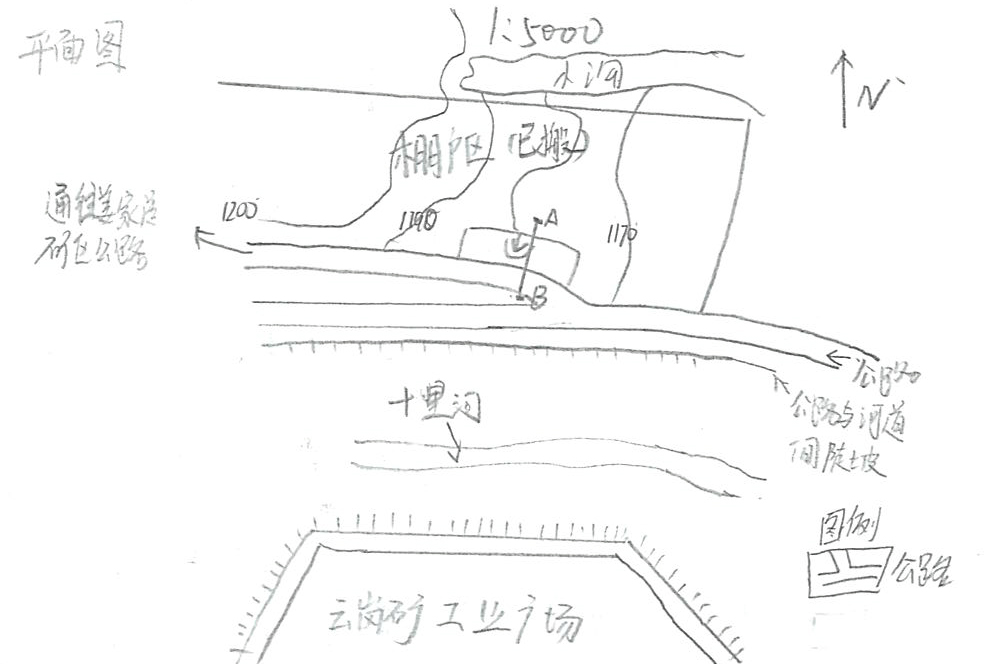 平面图
1:5000
水沟
N
棚户区 (已搬)
通往姜家湾
矿区公路
1200
1190
A
1170
B
公路
公路与河道
间陡坡
十里河
图例
公路
云岗矿工业广场